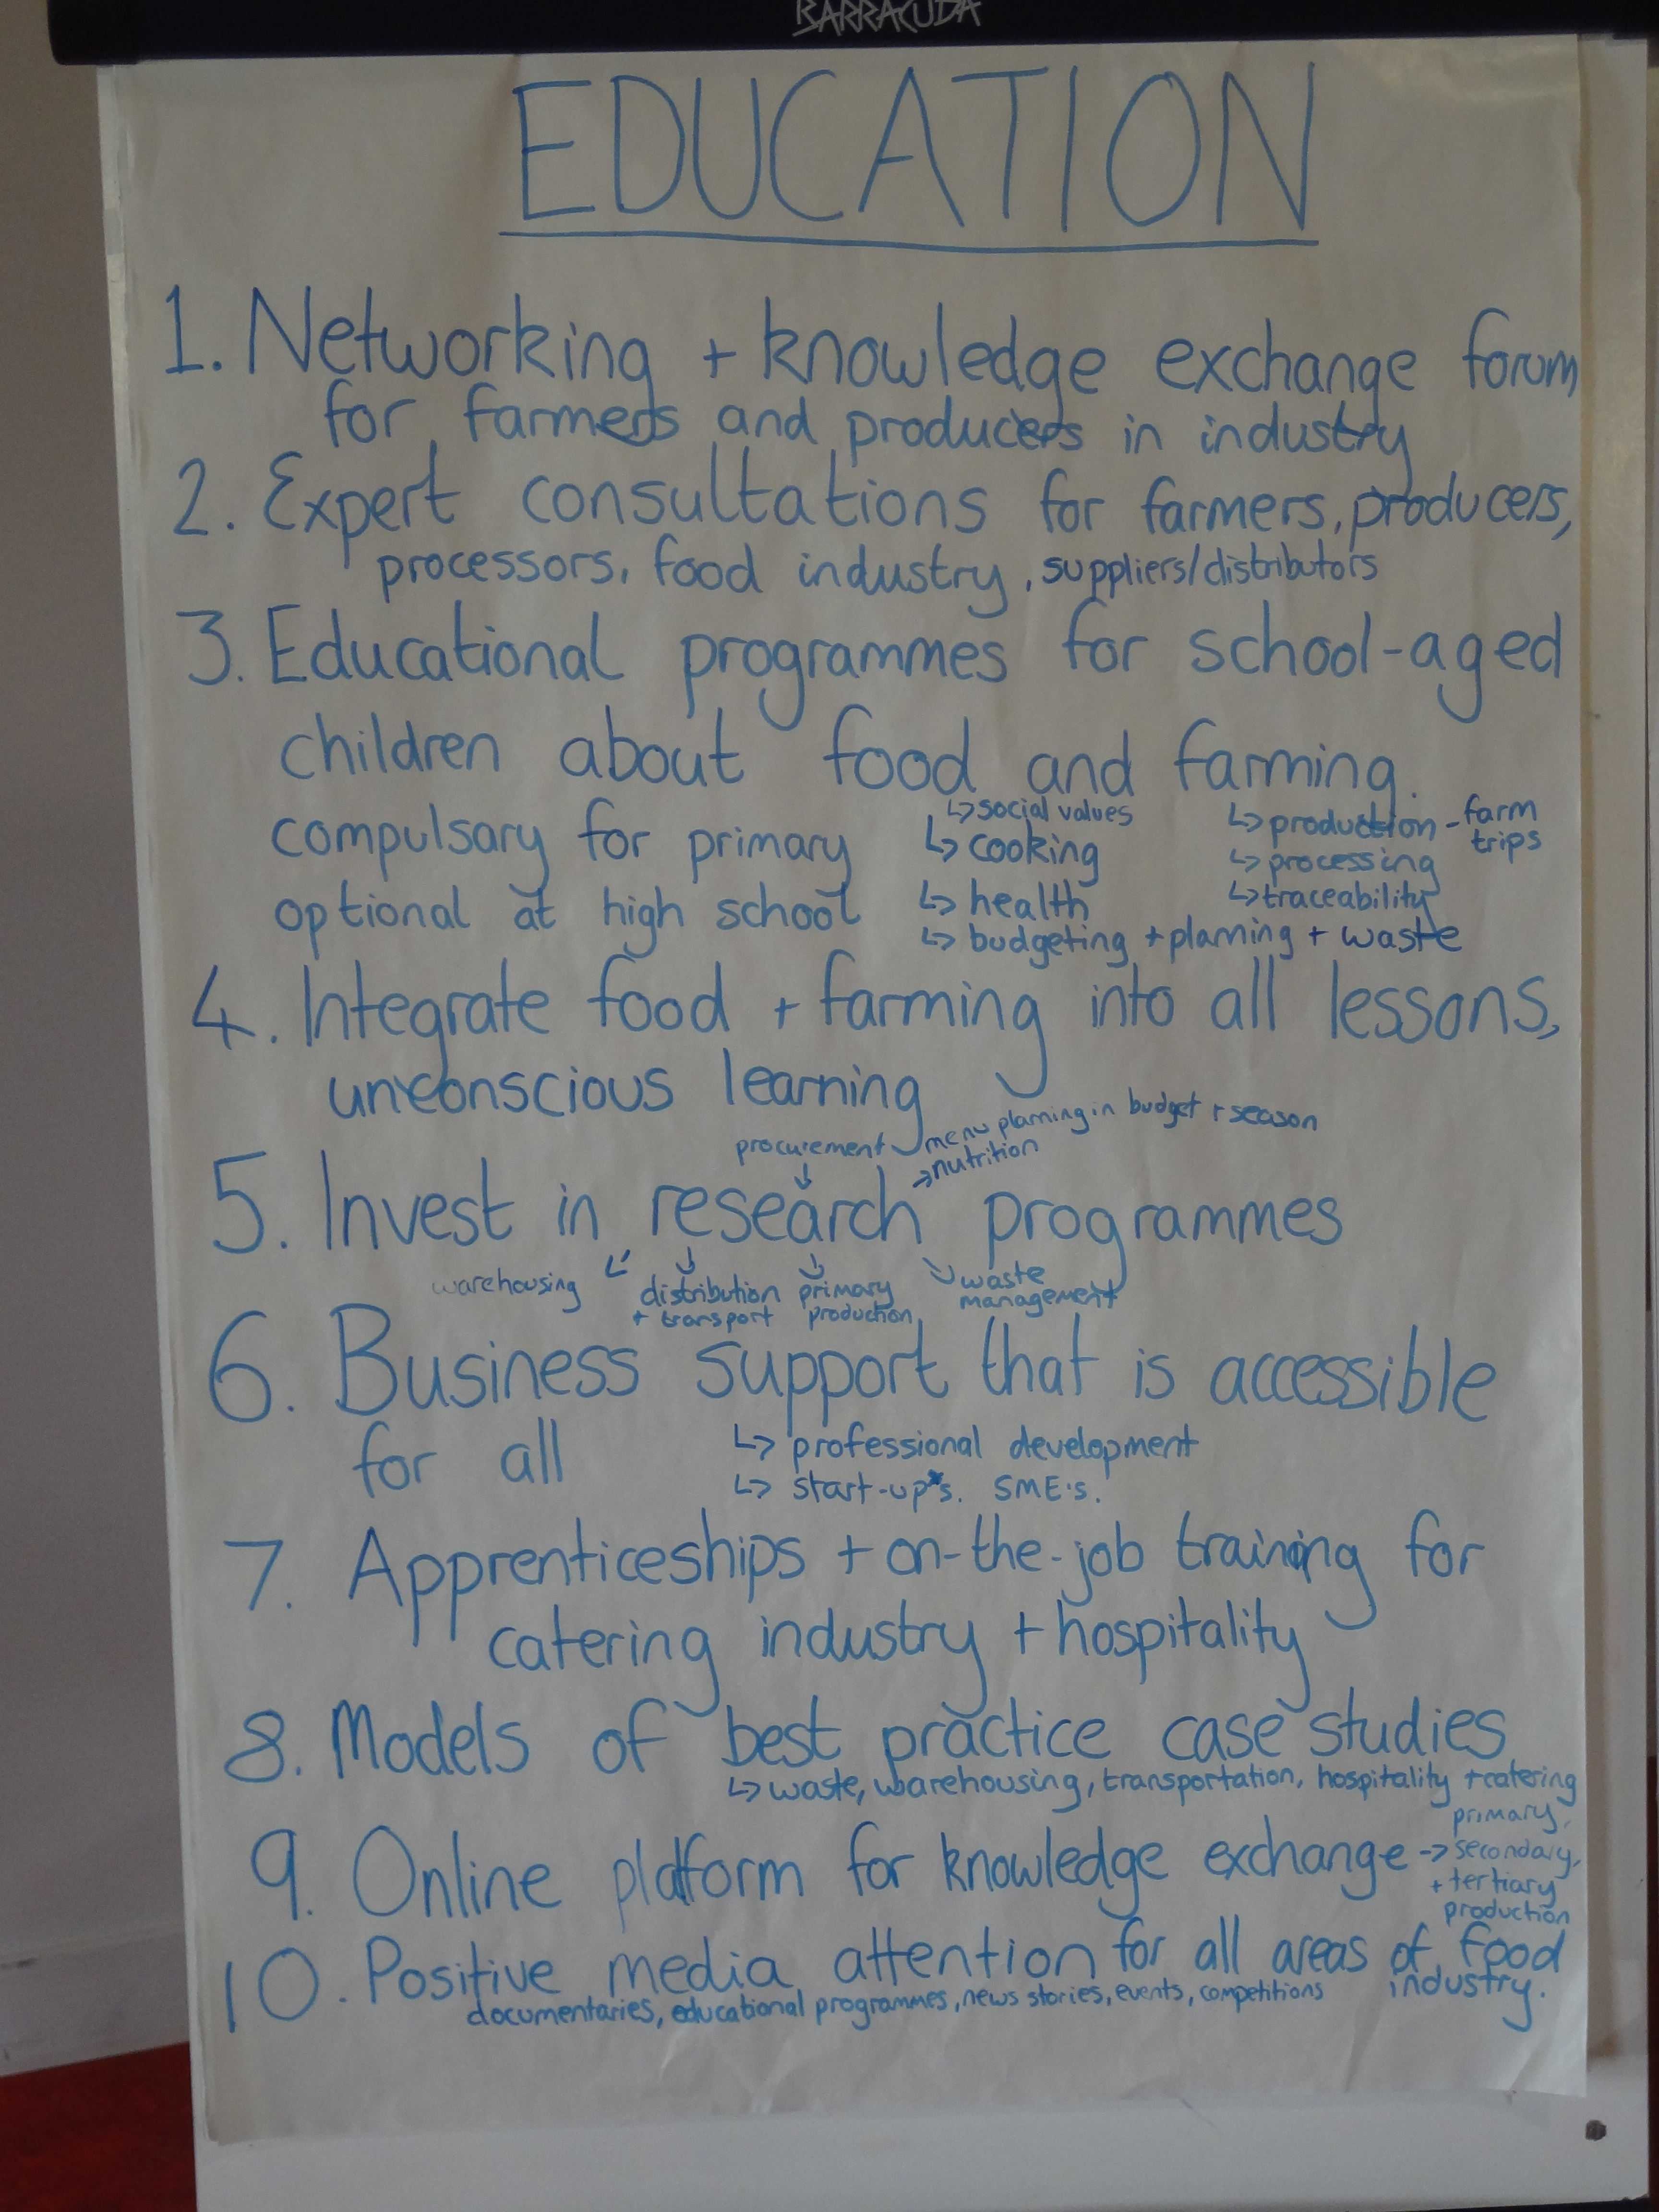 BARRACUDA
EDUCATION
1. Networking + knowledge exchange forum
for farmers and producers in industry
2. Expert consultations for farmers, producers,
processors, food industry, suppliers/distributors
3. Educational programmes for school-aged
children about food and farming.
↳ social values ↳ production - farm trips
compulsary for primary ↳ cooking ↳ processing
optional at high school ↳ health ↳ traceability
↳ budgeting + planning + waste
4. Integrate food + farming into all lessons,
unconscious learning
procurement menu planning in budget + season
→ nutrition
5. Invest in research programmes
warehousing distribution + transport primary production waste management
6. Business support that is accessible
for all ↳ professional development
↳ start-up's. SME's.
7. Apprenticeships + on-the-job training for
catering industry + hospitality
8. Models of best practice case studies
↳ waste, warehousing, transportation, hospitality + catering
9. Online platform for knowledge exchange → primary, secondary, + tertiary production
10. Positive media attention for all areas of food industry.
documentaries, educational programmes, news stories, events, competitions